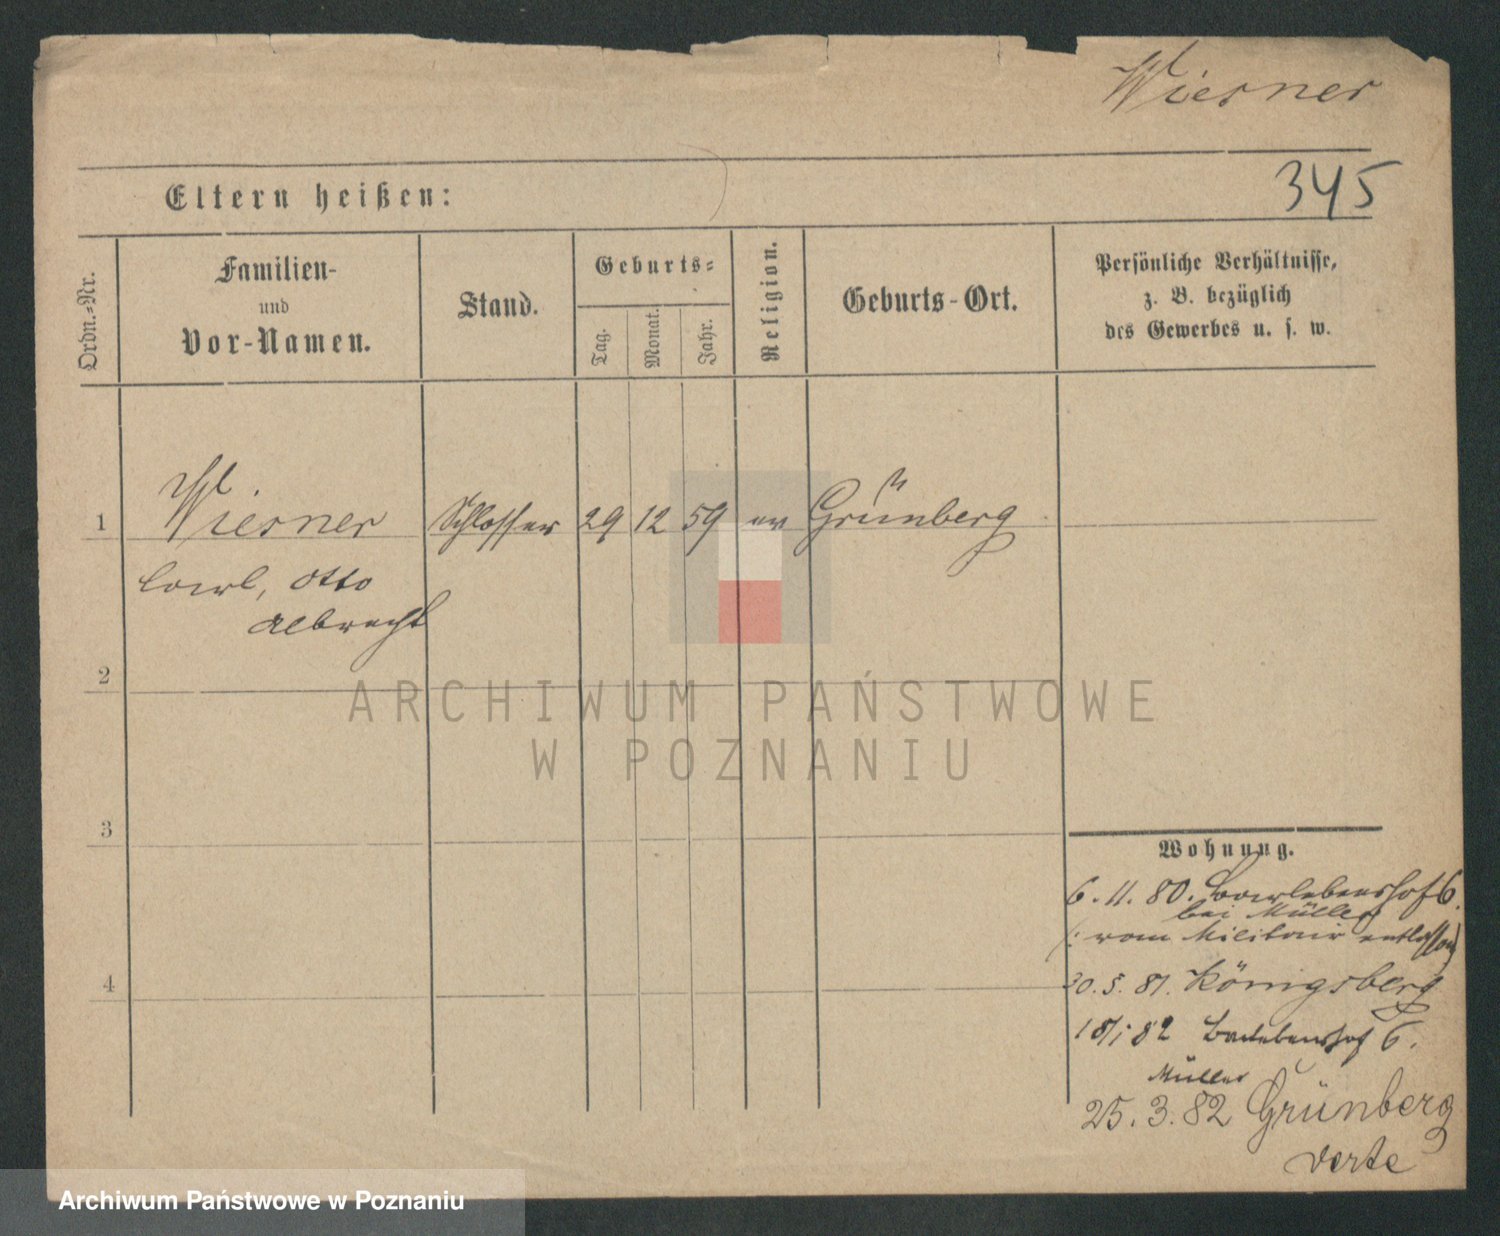 Wiesner
345
Eltern heißen:
Ordn.-Nr.
Familien-
und
Vor-Namen.
Stand.
Geburts-
Tag.
Monat.
Jahr.
Religion.
Geburts-Ort.
Persönliche Verhältnisse,
z. B. bezüglich
des Gewerbes u. s. w.
1 Wiesner Schlosser 29 12 59 ev Grünberg
Carl, Otto
Albrecht
2
ARCHIWUM PAŃSTWOWE
W POZNANIU
3
Wohnung.
6. 11. 80. 6.
bei Müller
(: vom Militair entlassen)
4
30. 5. 81. Königsberg
18/1 82 6.
Müller
25. 3. 82 Grünberg
verte
Archiwum Państwowe w Poznaniu